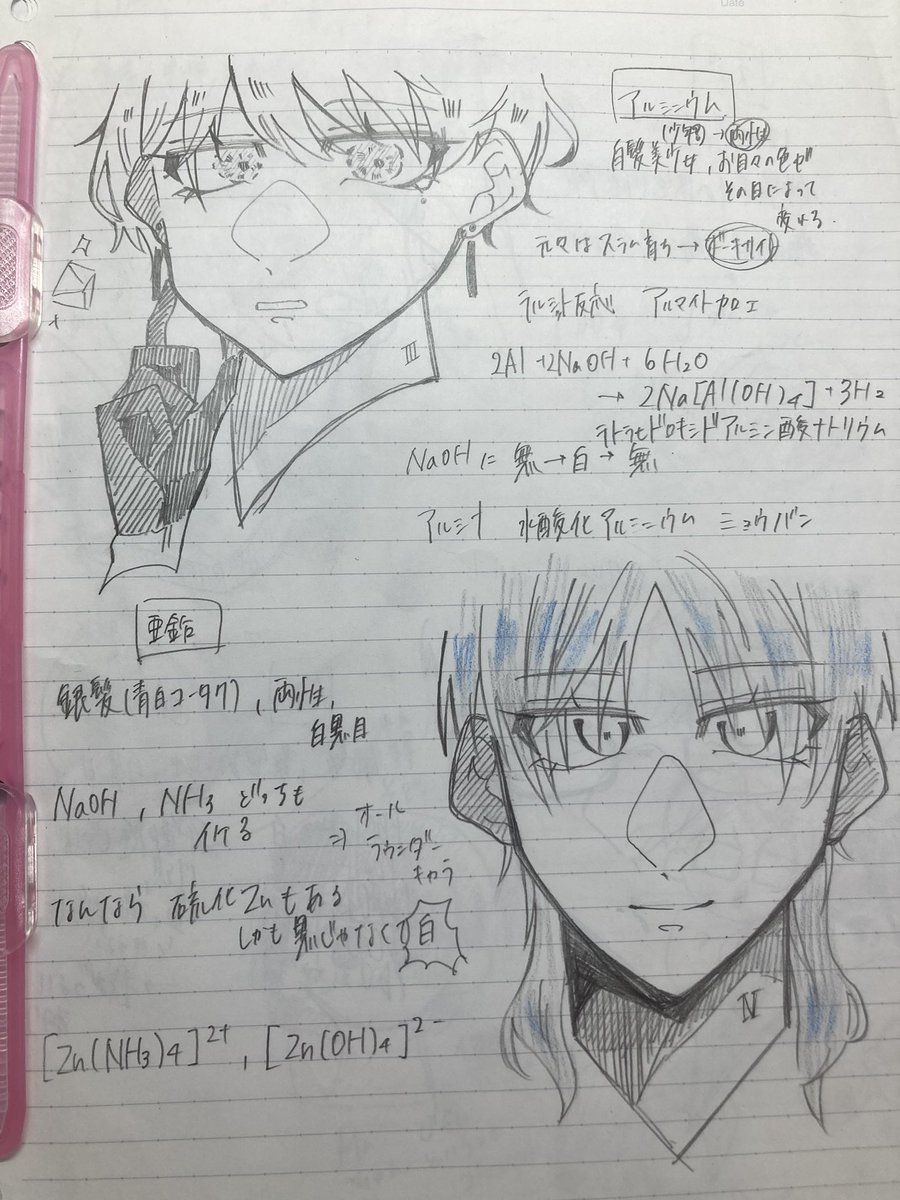 Date
アルミニウム
(少年) → 両性
白髪美少女, お目々の色が
その日によって
変わる.
元々はスラム育ち → ボーキサイト
テルミット反応 アルマイト加工
III
2Al + 2NaOH + 6H2O
→ 2Na[Al(OH)4] + 3H2
テトラヒドロキシドアルミン酸ナトリウム
NaOHに 無 → 白 → 無
アルミナ 水酸化アルミニウム ミョウバン
亜鉛
銀髪(青白コータク), 両性,
白黒目
NaOH, NH3 どっちも
イケる
⇒ オール
ラウンダー
キャラ
なんなら 硫化Znもある
しかも黒じゃなくて白
IV
[Zn(NH3)4]2+, [Zn(OH)4]2-